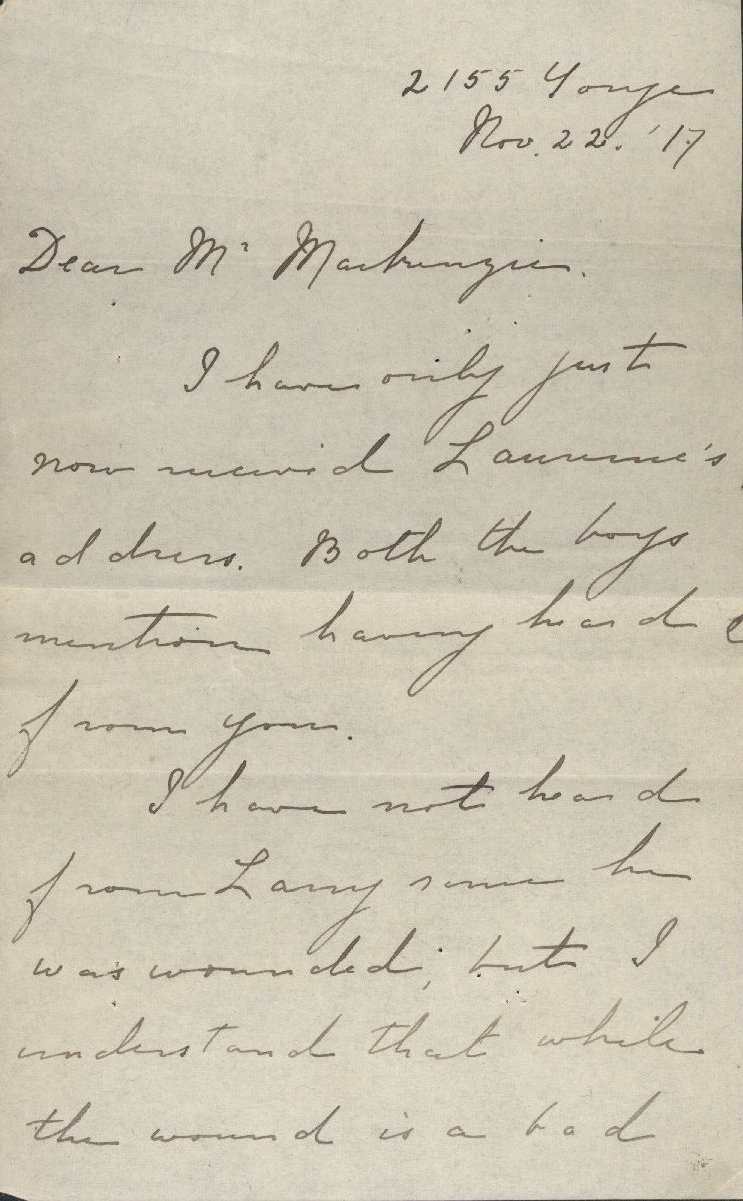 2155 Yonge
Nov. 22. '17
Dear Mr Mackenzie.
I have only just
now received Lawrence's
address. Both the boys
mention having heard
from you.
I have not heard
from Larry since he
was wounded, but I
understand that while
the wound is a bad